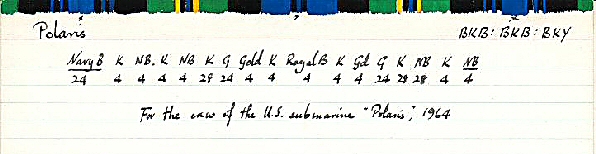 Polaris BKB: BKB: BKY
Navy B K NB. K NB K G Gold K Royal B K Gd G K NB K NB
24 4 4 4 4 28 24 4 4 4 4 4 24 28 28 4 4
For the crew of the U.S. submarine "Polaris", 1964